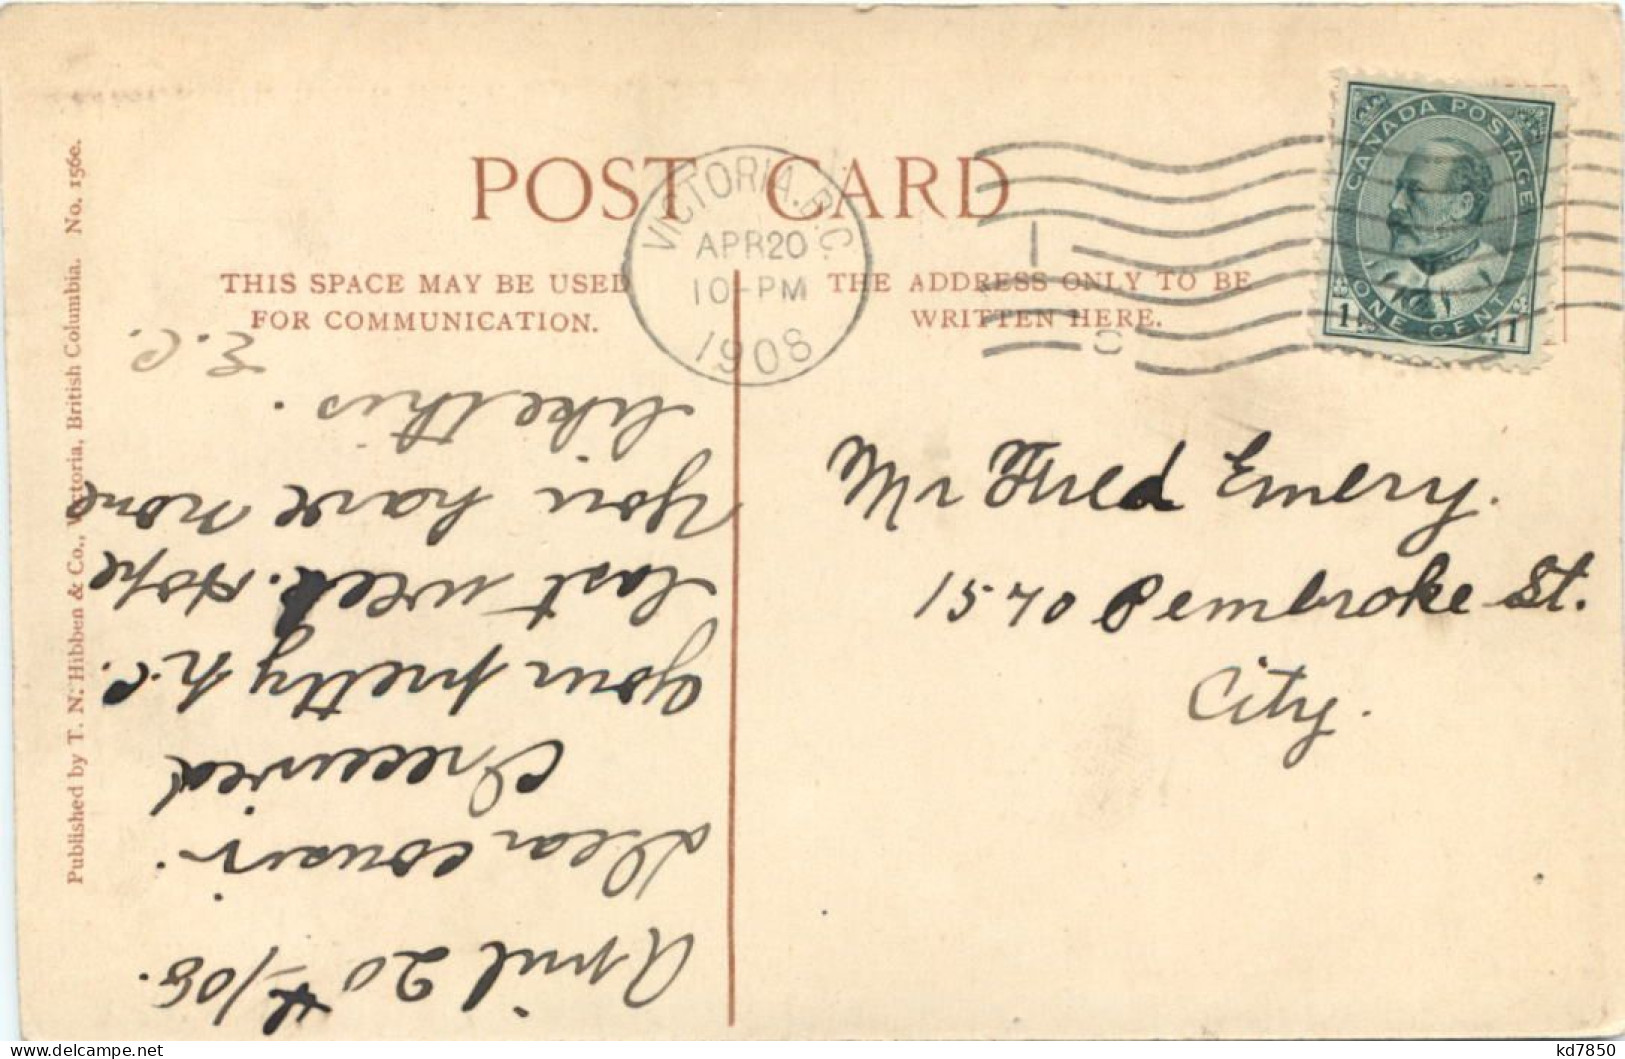 POST CARD
THIS SPACE MAY BE USED
FOR COMMUNICATION.
THE ADDRESS ONLY TO BE
WRITTEN HERE.
VICTORIA. B.C.
APR 20
10-PM
1908
CANADA POSTAGE
ONE CENT
1 1
Mr Fred Emery.
1570 Pembroke St.
City.
April 20th/08.
Dear cousin.
I received
your pretty p.c.
last week. Hope
you have none
like this.
E.C.
Published by T. N. Hibben & Co., Victoria, British Columbia. No. 156e.
kd7850